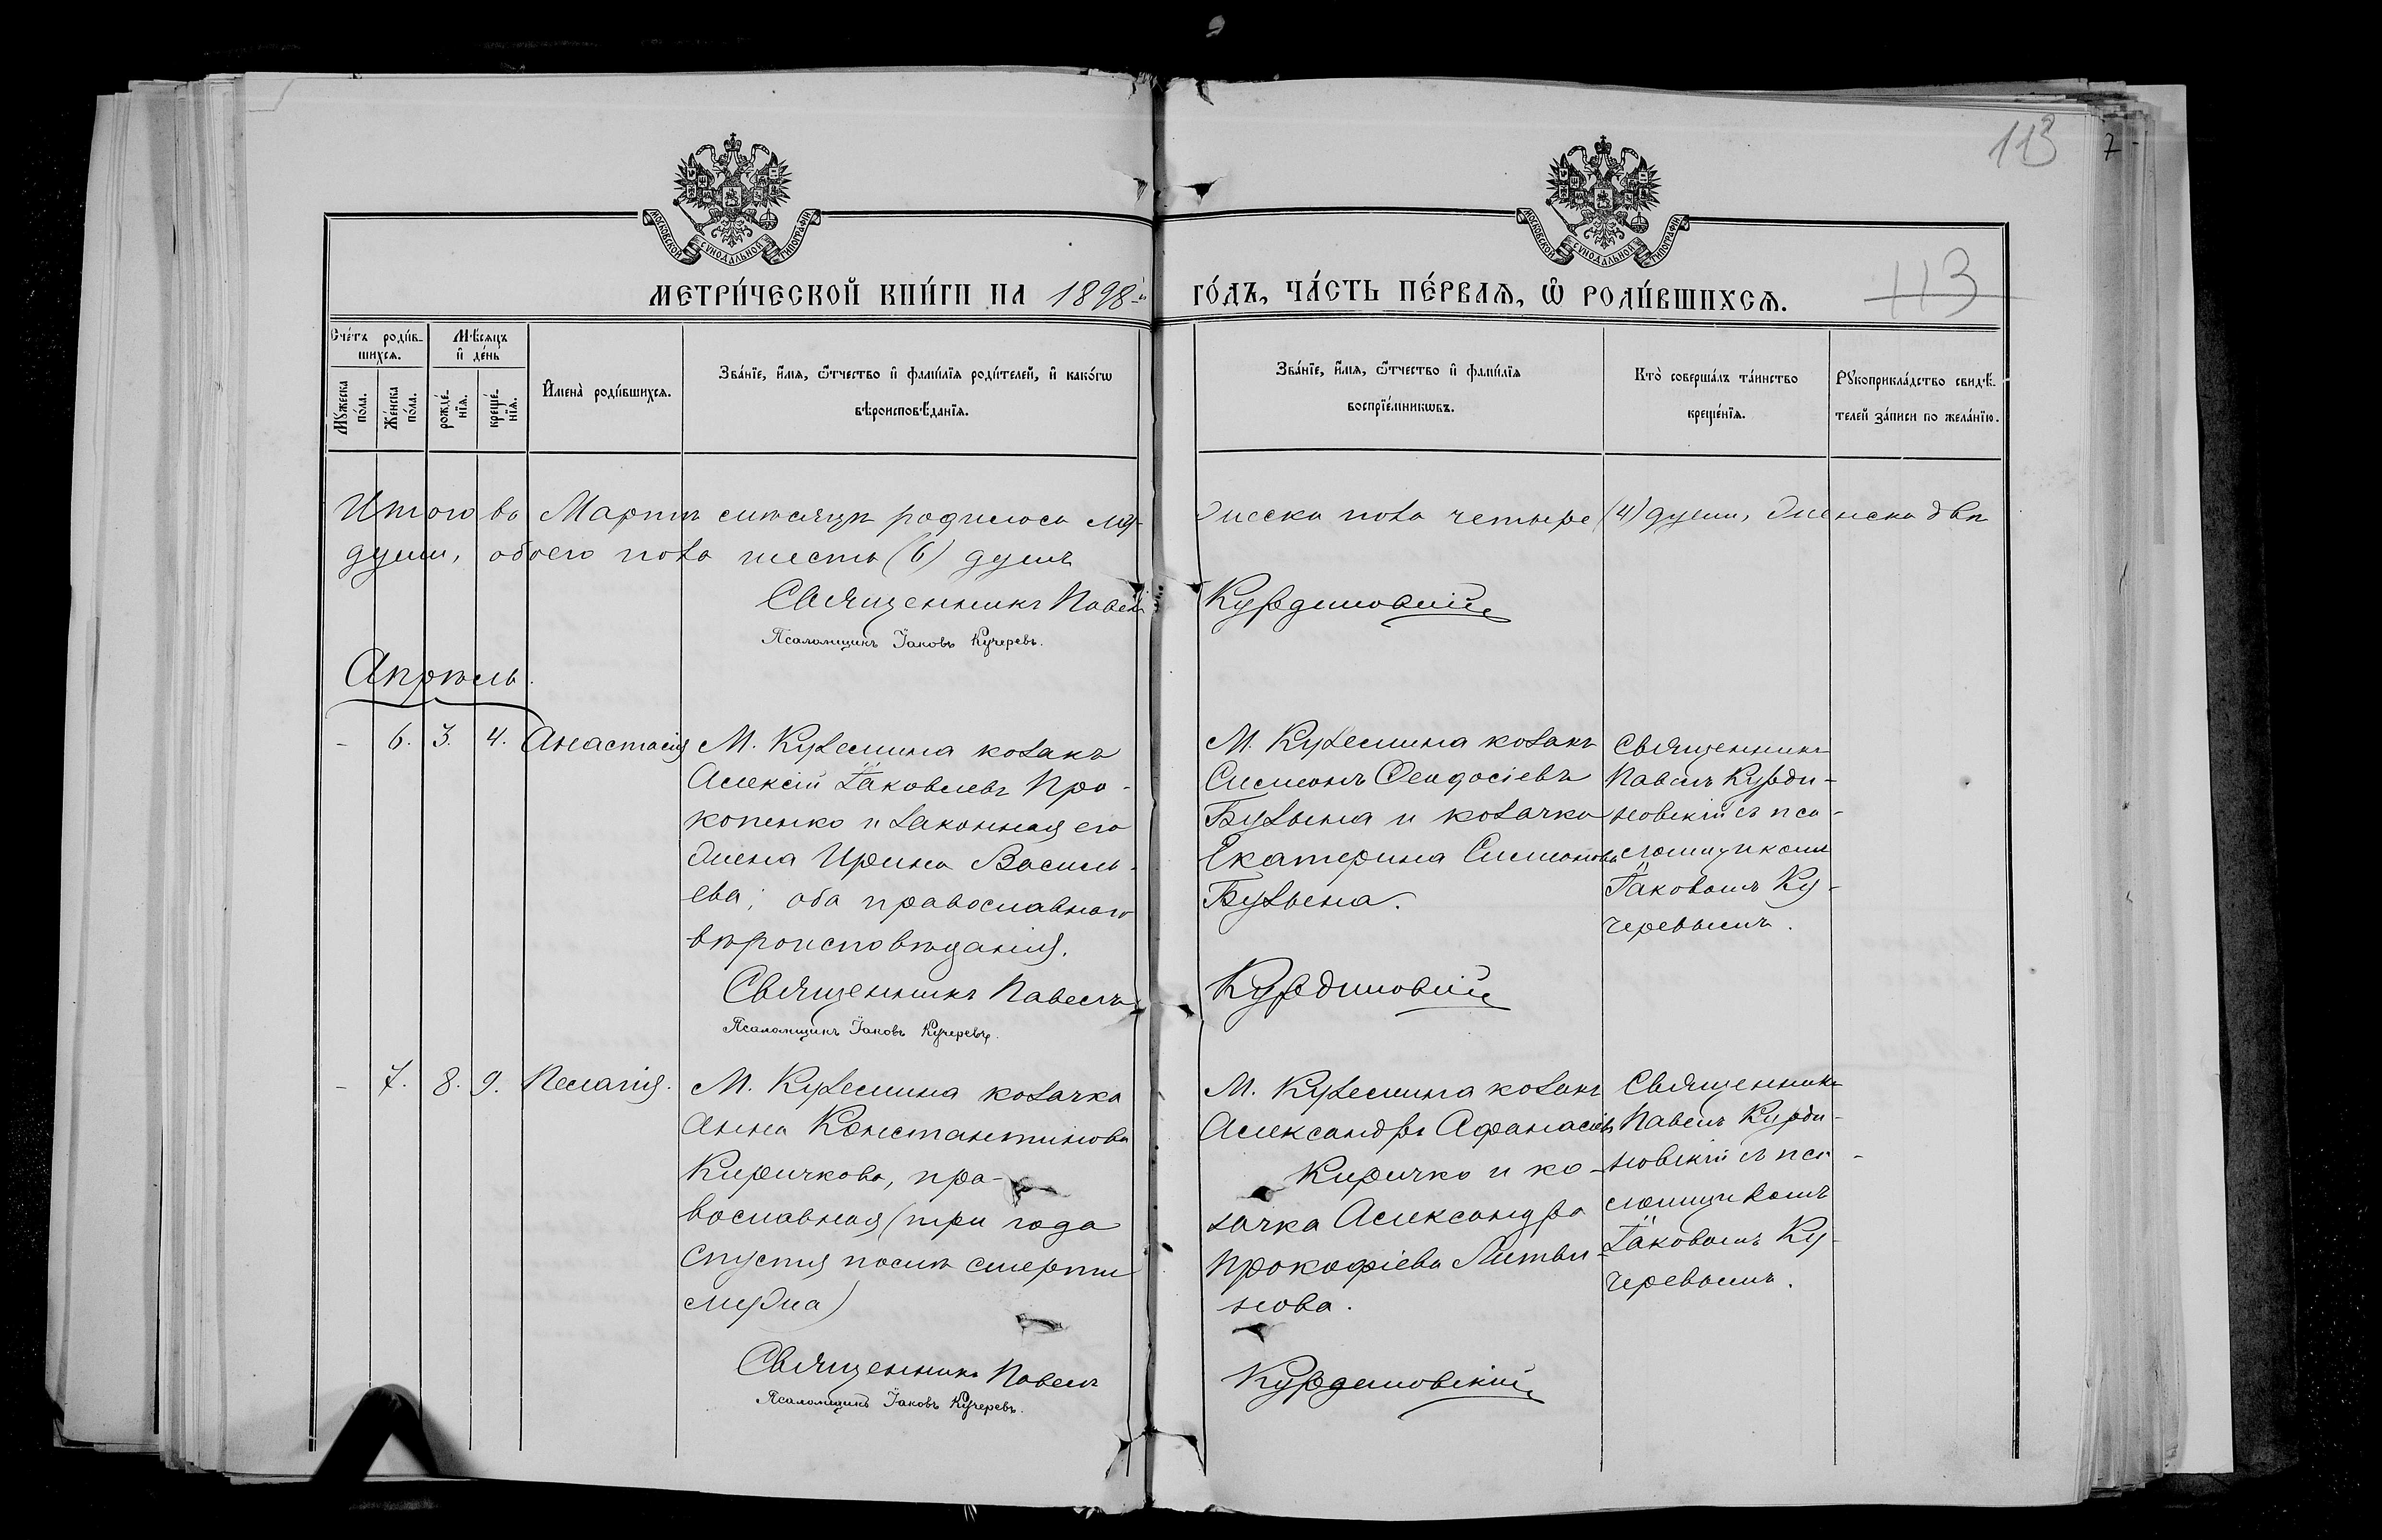 113
7
МОСКОВСКОЙ СѴНОДАЛЬНОЙ ТИПОГРАФІИ
МОСКОВСКОЙ СѴНОДАЛЬНОЙ ТИПОГРАФІИ
МЕТРИ́ЧЕСКОЙ КНИ́ГИ НА 1898й
ГО́ДЪ, ЧА́СТЬ ПЕ́РВАѦ, Ѡ҆ РОДИ́ВШИХСѦ.
113
Сче́тъ роди́в-
шихсѧ.
Мꙋ́жеска по́ла.
Же́нска по́ла.
Мѣ́сѧцъ
и҆ де́нь
рожде́-нїѧ.
креще́-нїѧ.
И҆мена̀ роди́вшихсѧ.
Зва́нїе, и҆́мѧ, ѻ҆́тчество и҆ фами́лїѧ роди́телей, и҆ како́гѡ
вѣроисповѣ́данїѧ.
Зва́нїе, и҆́мѧ, ѻ҆́тчество и҆ фами́лїѧ
воспрїе́мникѡвъ.
Кто̀ соверша́лъ та́инство
креще́нїѧ.
Рꙋкоприкла́дство свидѣ́-
телей за́писи по жела́нїю.
Итого въ Мартѣ мѣсяцѣ родилось му-
жеска пола четыре (4) души, женска двѣ
души, обоего пола шесть (6) душъ
Священникъ Павелъ
Курдиновскій
Псаломщикъ Іаковъ Кучеревъ.
Апрѣль.
- 6. 3. 4. Анастасія
М. Куземина козакъ
Алексій Іаковлевъ Про-
копенко и законная его
жена Ирина Василь-
ева; оба православнаго
вѣроисповѣданія.
Священникъ Павелъ
Псаломщикъ Іаковъ Кучеревъ.
М. Куземина козакъ
Симеонъ Ѳеодосіевъ
Бузына и козачка
Екатерина Симеонова
Бузына.
Курдиновскій
Священникъ
Павелъ Курди-
новскій съ пса-
ломщикомъ
Іаковомъ Ку-
черевымъ.
- 7. 8. 9. Пелагія.
М. Куземина козачка
Анна Константинова
Киричкова, пра-
вославная (три года
спустя послѣ смерти
мужа)
Священникъ Павелъ
Псаломщикъ Іаковъ Кучеревъ.
М. Куземина козакъ
Александръ Афанасіевъ
Киричко и ко-
зачка Александра
Прокофіева Литви-
нова.
Курдиновскій
Священникъ
Павелъ Курди-
новскій съ пса-
ломщикомъ
Іаковомъ Ку-
черевымъ.